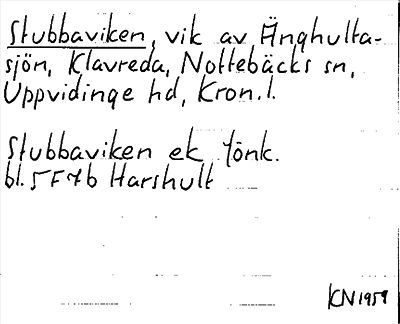 Stubbaviken, vik av Änghulta-
sjön, Klavreda, Nottebäcks sn,
Uppvidinge hd, Kron.l.
Stubbaviken ek Jönk.
bl. 5F7b Harshult
KN1959